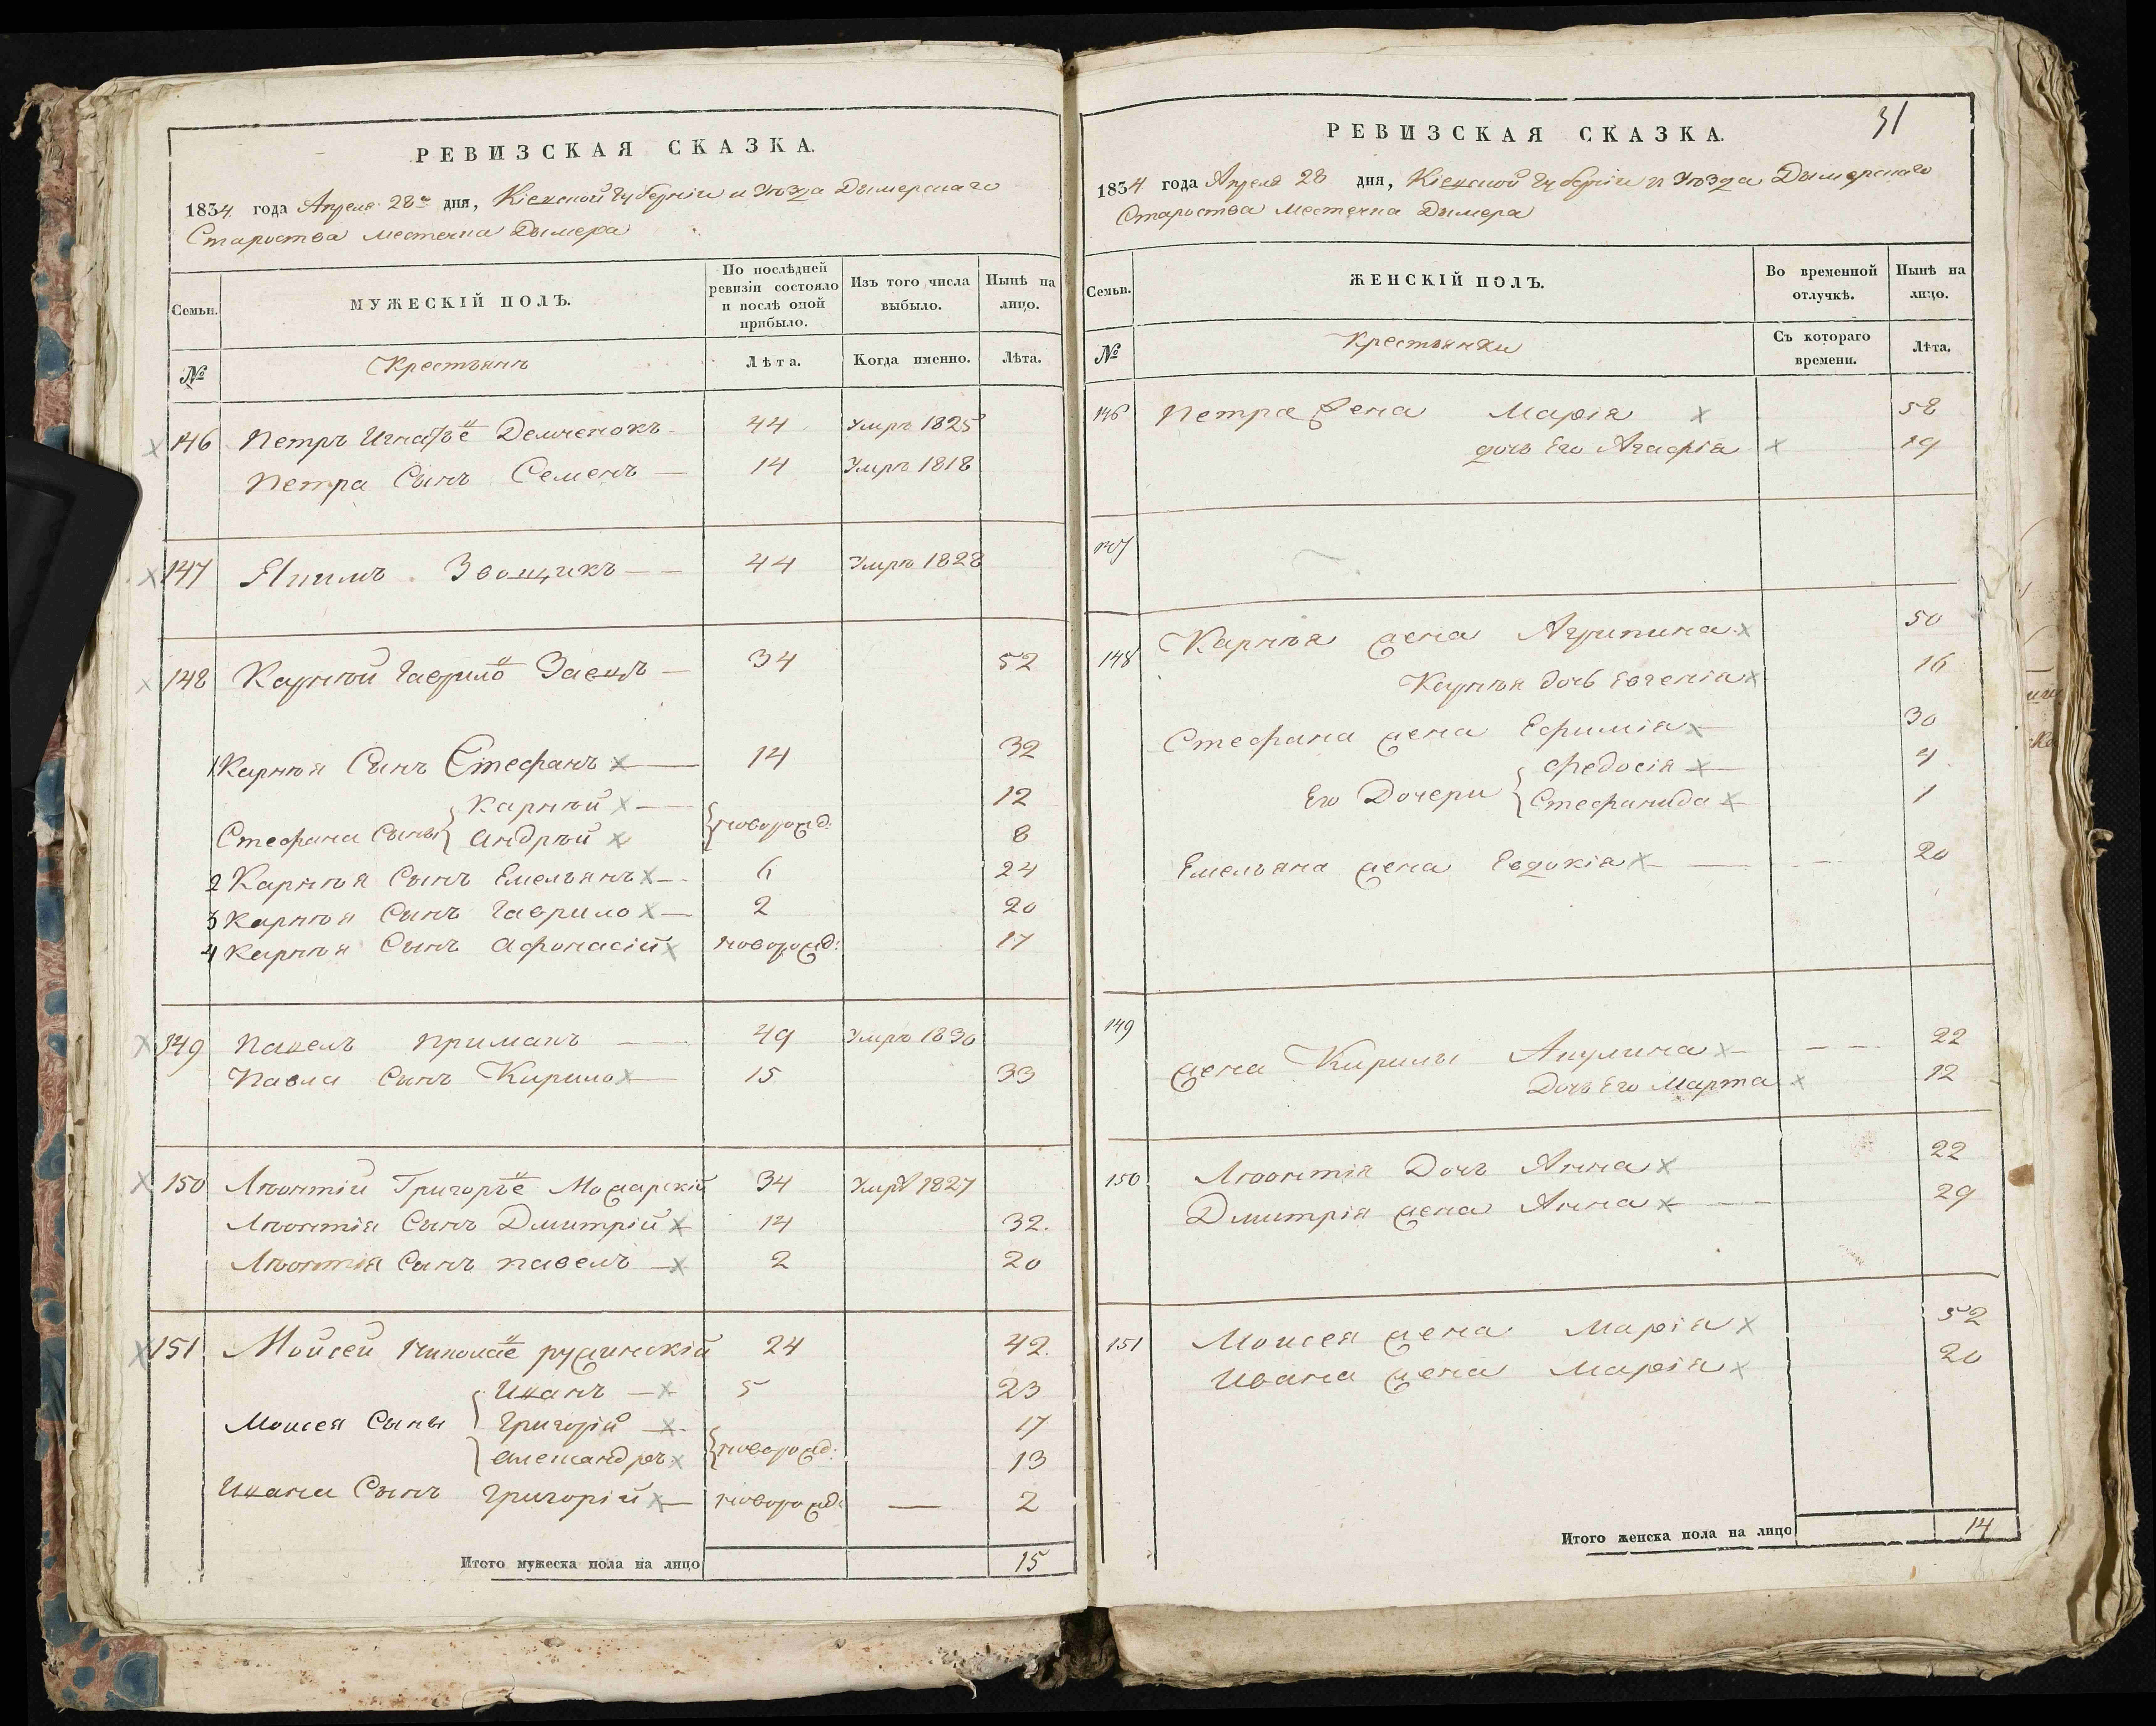 РЕВИЗСКАЯ СКАЗКА.
1834 года Апреля 28го дня, Кіевской губерніи и уѣзда Дымерскаго
Староства местечка Дымера
Семьи. МУЖЕСКІЙ ПОЛЪ. По послѣдней ревизіи состояло и послѣ оной прибыло. Изъ того числа выбыло. Нынѣ на лицо.
№ Крестьянъ Лѣта. Когда именно. Лѣта.
146 Петръ Игнатъе Демченокъ 44 Умръ 1825
Петра Сынъ Семенъ 14 Умръ 1818
147 Якимъ Звощикъ 44 Умръ 1828
148 Карнѣй Гаврило Заецъ 34 52
1 Карнѣя Сынъ Стефанъ 14 32
Карнѣй 12
Стефана Сыны Андрѣй новорожд: 8
2 Карнѣя Сынъ Емельянъ 6 24
3 Карнѣя Сынъ Гаврило 2 20
4 Карнѣя Сынъ Афонасій новорожд: 17
149 Павелъ Примакъ 49 Умръ 1830
Павла Сынъ Кирило 15 33
150 Лѣонтій Григоръе Можарскій 34 Умръ 1827
Лѣонтія Сынъ Дмитрій 14 32.
Лѣонтія Сынъ Павелъ 2 20
151 Мойсей ружинскій 24 42.
Иванъ 5 23
Моисея Сыны Григорій 17
Александръ новорожд: 13
Ивана Сынъ Григорій новорожд: 2
Итого мужеска пола на лицо 15
31
РЕВИЗСКАЯ СКАЗКА.
1834 года Апреля 28 дня, Кіевской губерніи и уѣзда Дымерскаго
Староства местечка Дымера
Семьи. ЖЕНСКІЙ ПОЛЪ. Во временной отлучкѣ. Нынѣ на лицо.
№ Крестьянки Съ котораго времени. Лѣта.
146 Петра жена Марія 58
дочь Его Агафія 19
147
148 Карнѣя жена Агрипина 50
Карнѣя дочь Евгенія 16
Стефана жена Ефимія 30
Федосія 4
Его Дочери Стефанида 1
Емельяна жена Евдокія 20
149
жена Кирилы Акулина 22
Дочь Его Марта 12
150 Лѣонтія Дочь Анна 22
Дмитрія жена Анна 29
151 Моисея жена Марія 52
Ивана жена Марія 20
Итого женска пола на лицо 14